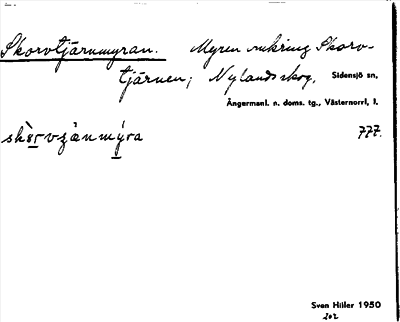 Skorvtjärnmyran. Myren omkring Skorv-
tjärnen; Nylandsskog. Sidensjö sn,
Ångermanl. n. doms. tg., Västernorrl, l.
777.
Sven Hiller 1950
202